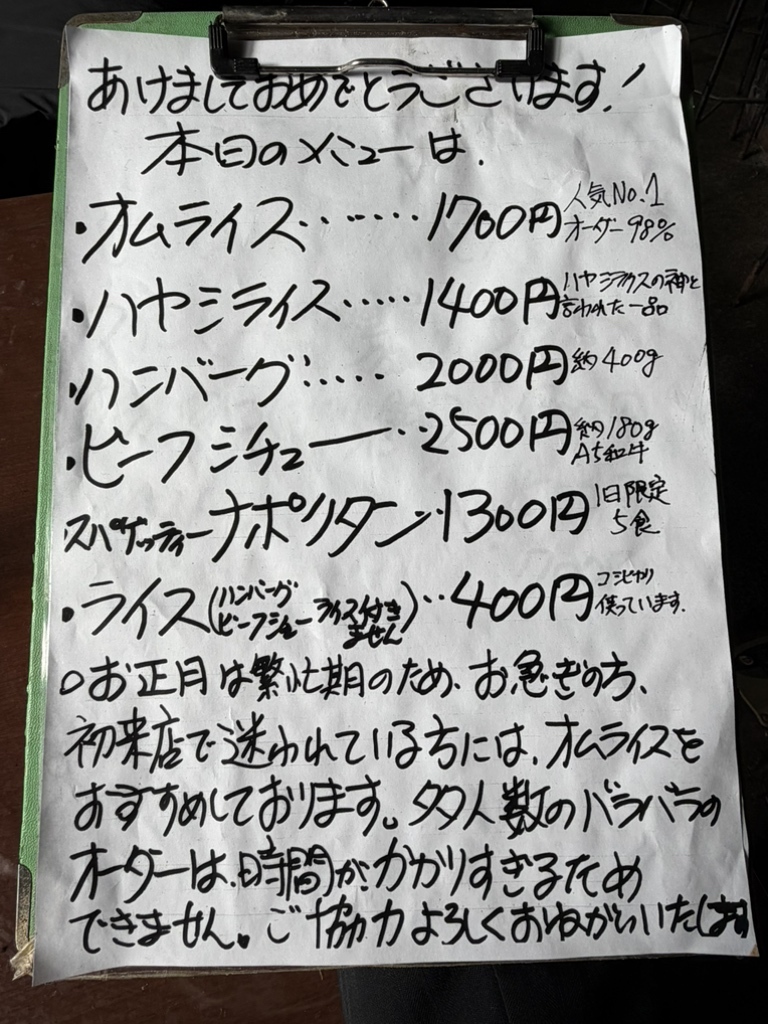 あけましておめでとうございます!
本日のメニューは、
・オムライス‥‥‥1700円 人気No.1 オーダー98%
・ハヤシライス‥‥・1400円 ハヤシライスの神と言われた一品
・ハンバーグ‥‥・2000円 約400g
・ビーフシチュー‥2500円 約180g A5和牛
スパゲッティーナポリタン‥1300円 1日限定5食
・ライス(ハンバーグ ビーフシチュー ライス付きません)‥400円 コシヒカリ使っています。
○お正月は繁忙期のため、お急ぎの方、
初来店で迷われている方には、オムライスを
おすすめしております。多人数のバラバラの
オーダーは、時間がかかりすぎるため
できません。ご協力よろしくおねがいいたします